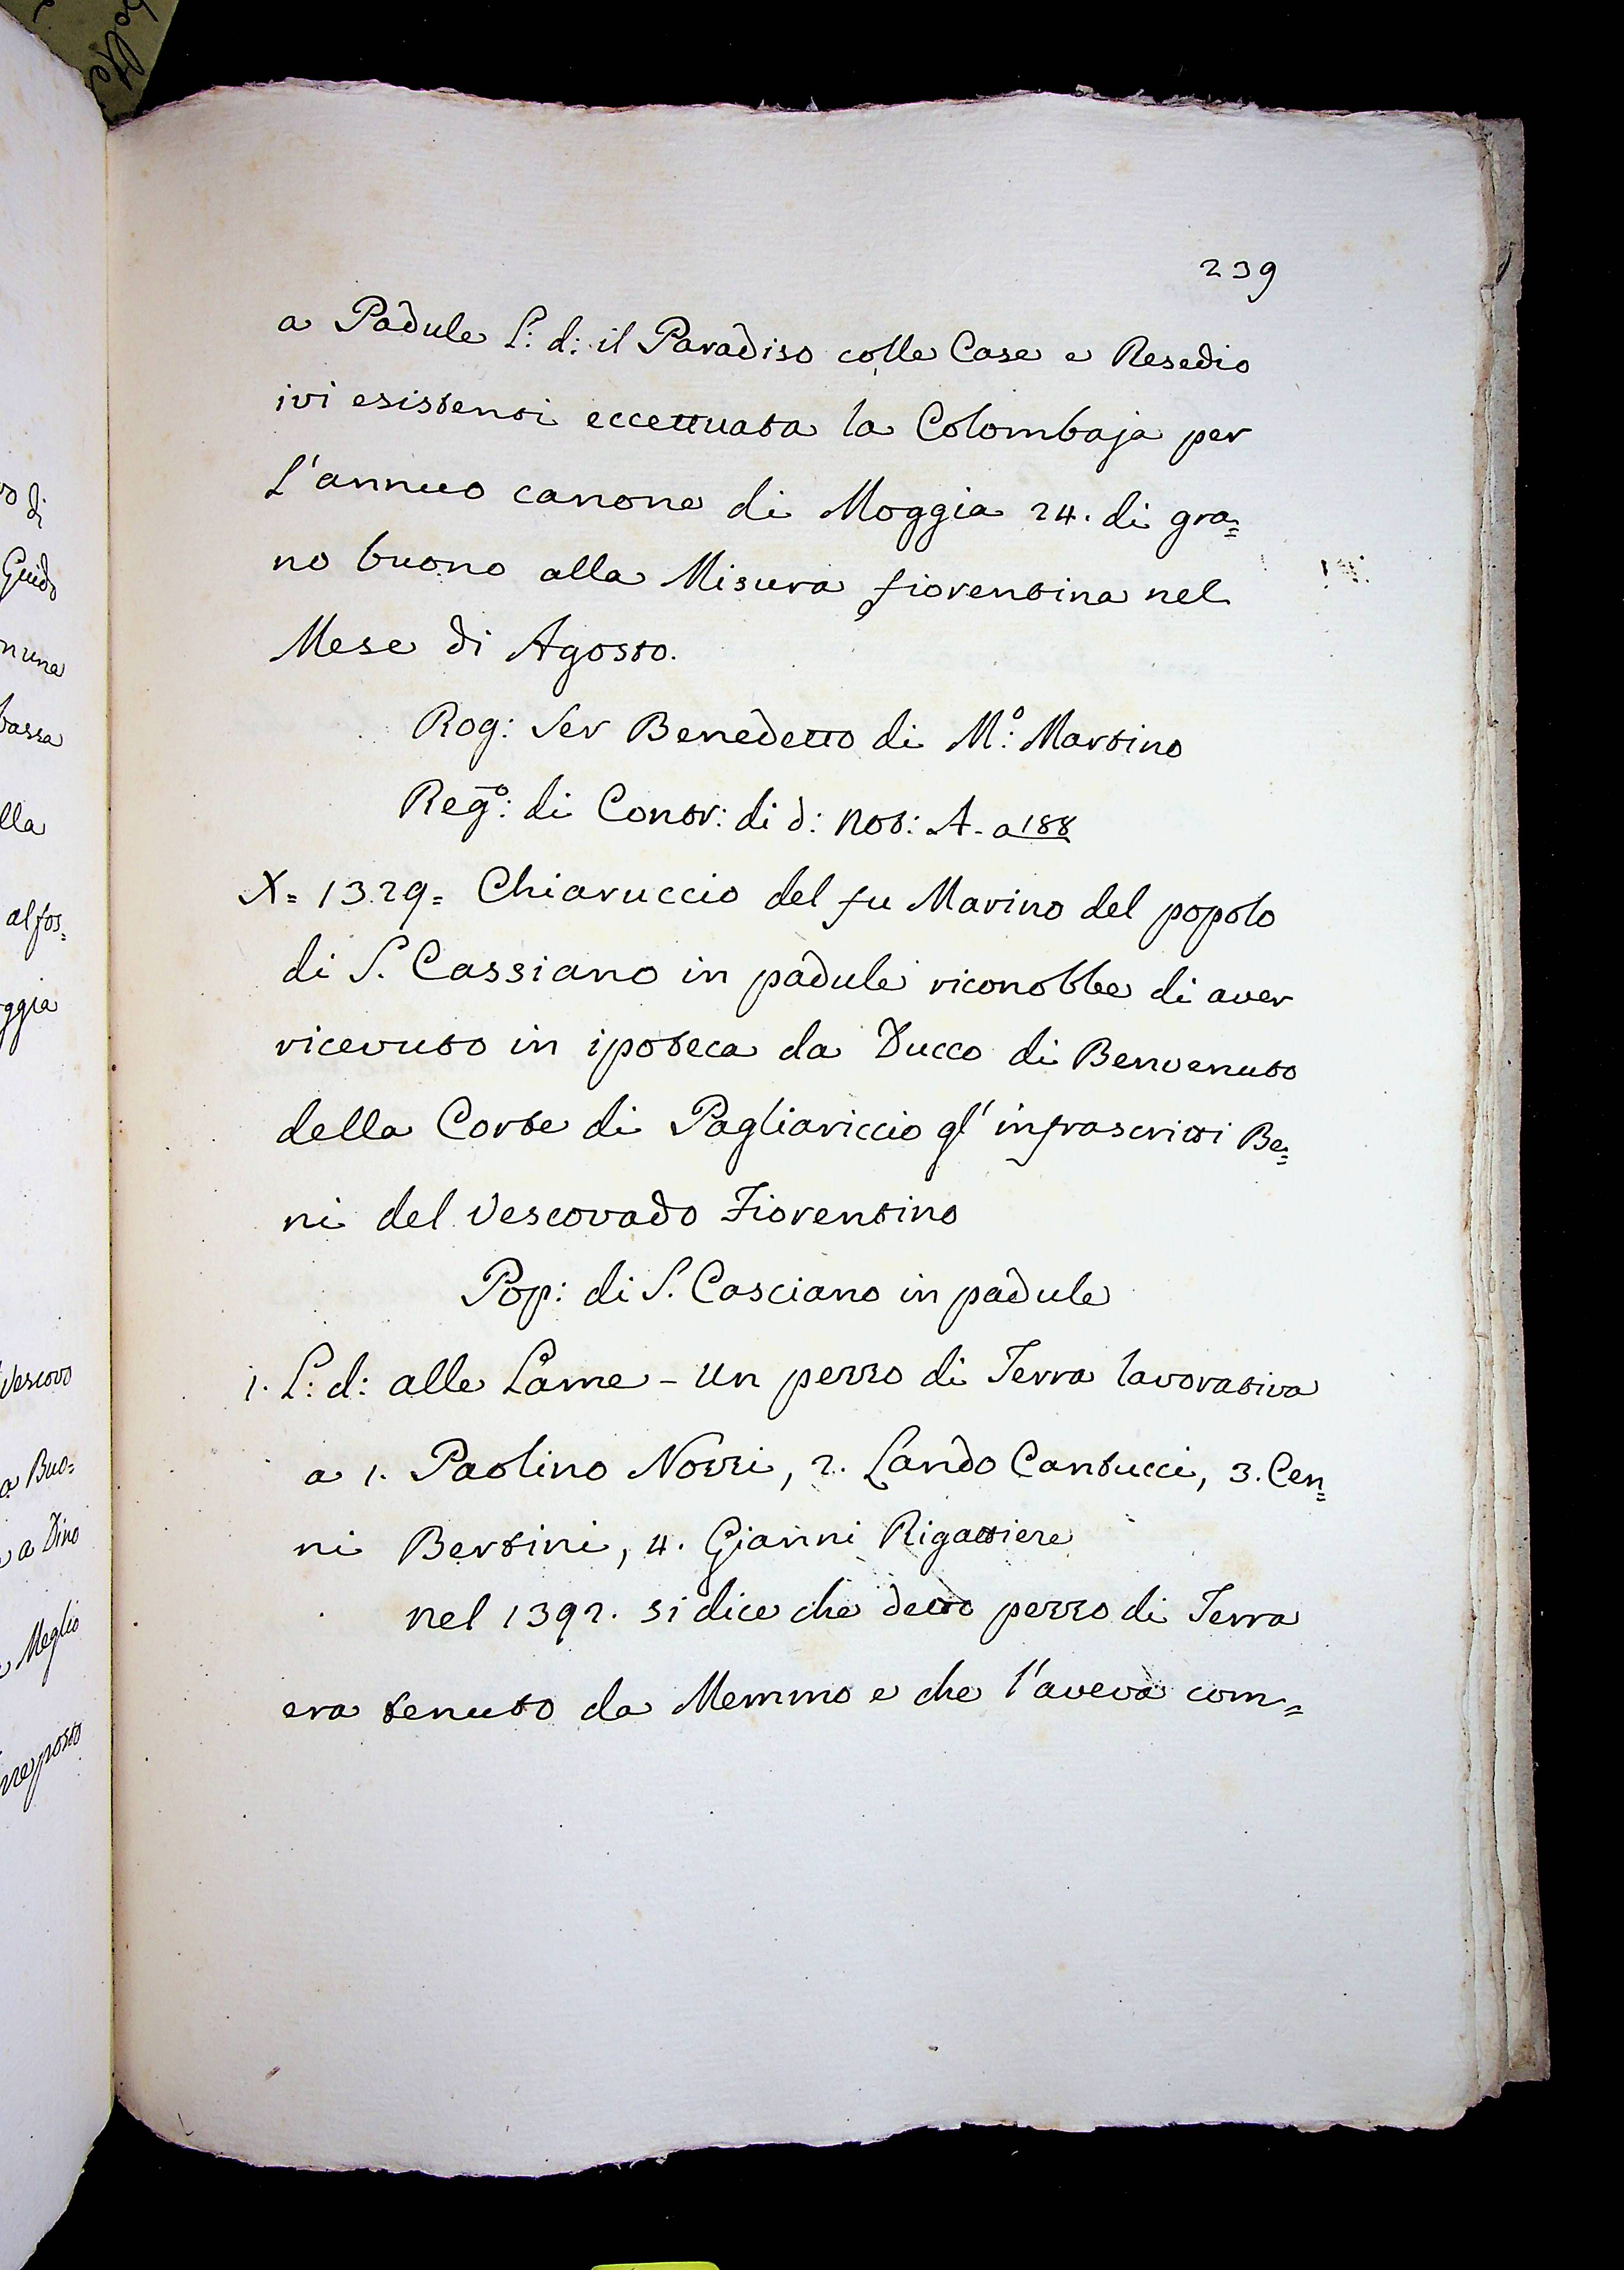 239
a Padule L: d: il Paradiso colle Case e Resedio
ivi esistenti eccettuata la Colombaja per
l'annuo canone di Moggia 24. di gra=
no buono alla Misura fiorentina nel
Mese di Agosto.
Rog: Ser Benedetto di M.º: Martino
Reg.º: di Contr: di d: Not: A- a 188
X= 1329= Chiaruccio del fu Marino del popolo
di S. Cassiano in padule riconobbe di aver
ricevuto in ipoteca da Ducco di Benvenuto
della Corte di Pagliariccio gl'infrascritti Be=
ni del Vescovado Fiorentino
Pop: di S. Casciano in padule
1. L: d: alle Lame - Un pezzo di Terra lavorativa
a 1. Paolino Nozzi, 2. Lando Cantucci, 3. Cen=
ni Bertini, 4. Gianni Rigattiere
nel 1392. si dice che detto pezzo di Terra
era tenuto da Memmo e che l'aveva com=
di
Guido
lla
al fos=
Vescovo
a Buo=
a Dino
Meglio